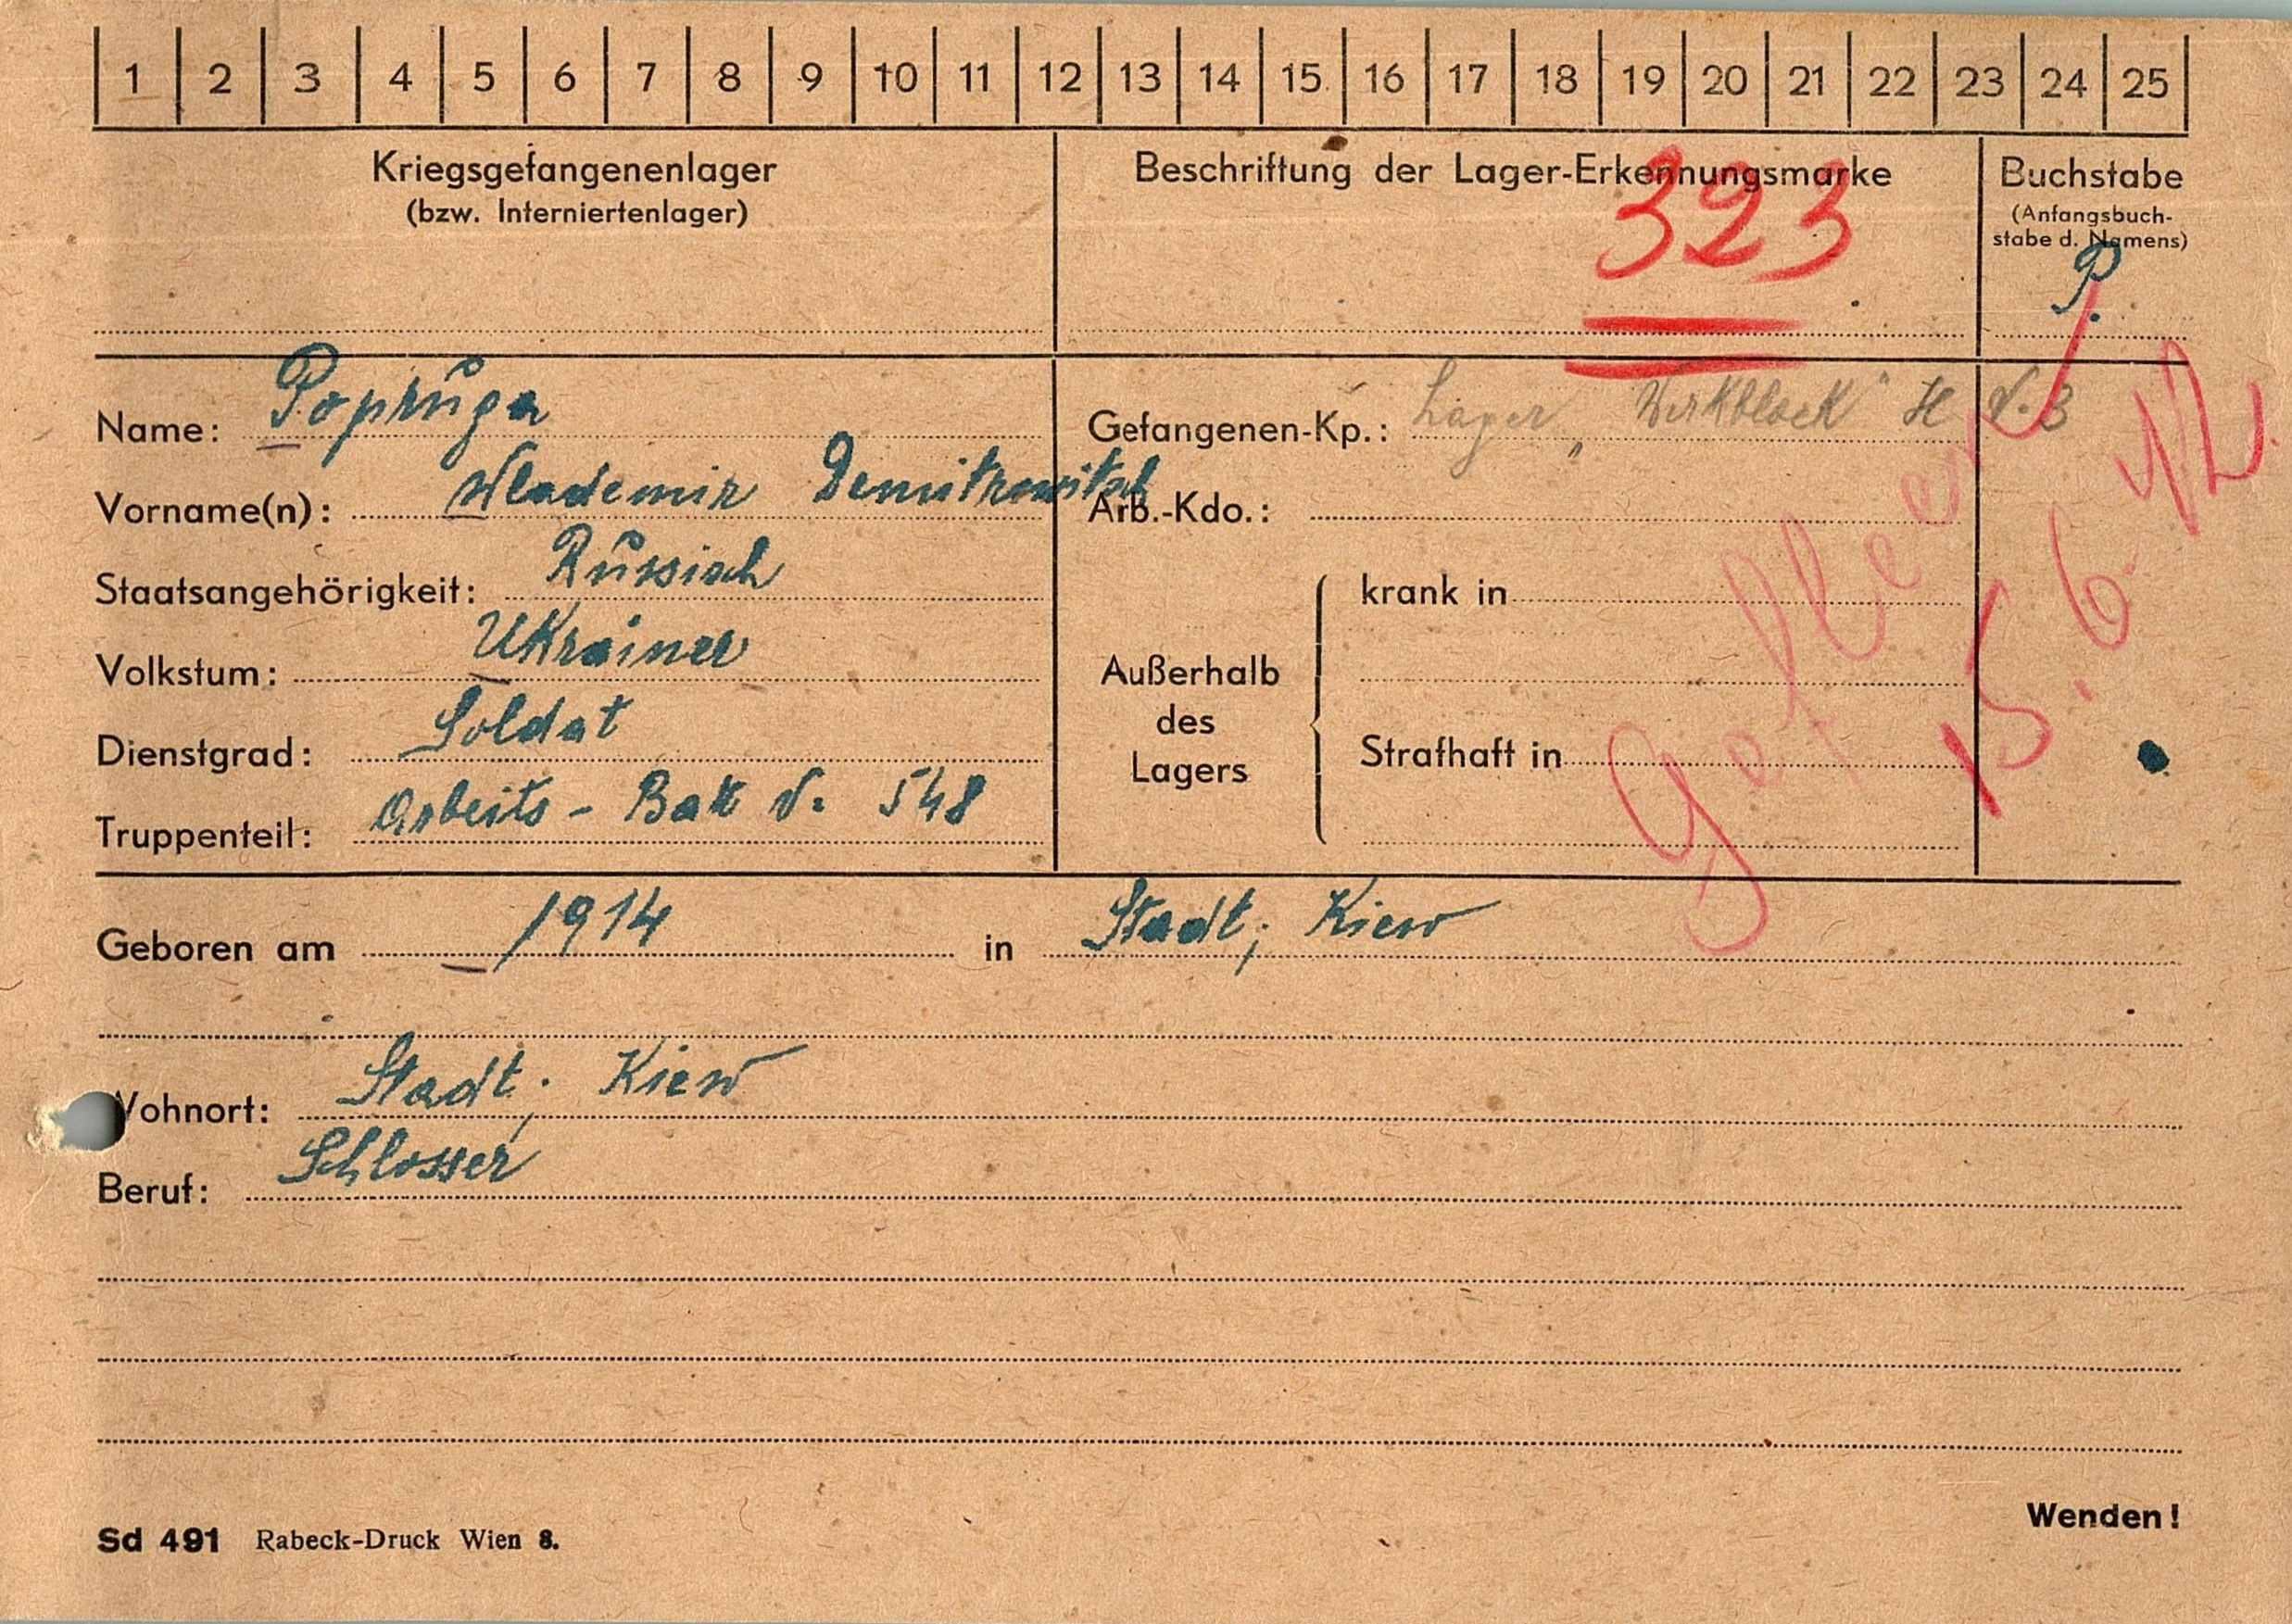 1 2 3 4 5 6 7 8 9 10 11 12 13 14 15 16 17 18 19 20 21 22 23 24 25
Kriegsgefangenenlager
(bzw. Interniertenlager)
Beschriftung der Lager-Erkennungsmarke
323
Buchstabe
(Anfangsbuch-
stabe d. Namens)
P.
Name: Popruga
Vorname(n): Wlademir Demitrowitsch
Staatsangehörigkeit: Russisch
Volkstum: Ukrainer
Dienstgrad: Soldat
Truppenteil: Arbeits-Bat N. 548
Gefangenen-Kp.: Lager „Werkblock" H N. 3
Arb.-Kdo.:
Außerhalb
des
Lagers
krank in
Strafhaft in
Geflohen
15.6.42.
Geboren am 1914 in Stadt, Kiew
Wohnort: Stadt, Kiew
Beruf: Schlosser
Wenden!
Sd 491 Rabeck-Druck Wien 8.